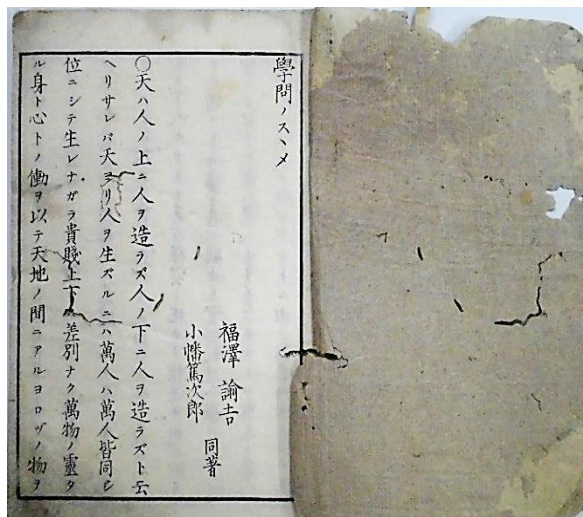 學問ノスヽメ
福澤諭吉
小幡篤次郎
同著
○天ハ人ノ上ニ人ヲ造ラズ人ノ下ニ人ヲ造ラズト云
ヘリサレバ天ヨリ人ヲ生ズルニハ萬人ハ萬人皆同じ
位ニシテ生レナガラ貴賤上下ノ差別ナク萬物ノ靈タ
ル身ト心トノ働ヲ以テ天地ノ間ニアルヨロヅノ物ヲ